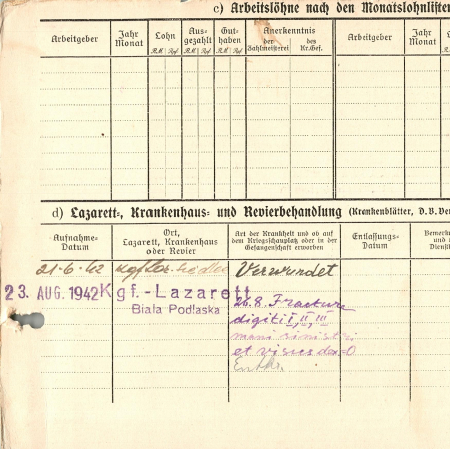 c) Arbeitslöhne nach den Monatslohnlisten
Arbeitgeber
Jahr
Monat
Lohn
RM Rpf
Aus-
gezahlt
RM Rpf
Gut-
haben
RM Rpf
Anerkenntnis
der
Zahlmeisterei
des
Kr.Gef.
Arbeitgeber
Jahr
Monat
d) Lazarett-, Krankenhaus- und Revierbehandlung (Krankenblätter, D.B.
Aufnahme-
Datum
Ort,
Lazarett, Krankenhaus
oder Revier
Art der Krankheit und ob auf
dem Kriegsschauplatz oder in der
Gefangenschaft erworben
Entlassungs-
Datum
21.6.42 Verwundet
23. AUG. 1942 Kgf.-Lazarett
Biala Podlaska
26.8. Fracture
digiti I, II, III
mani sinistri
et visus dex=0